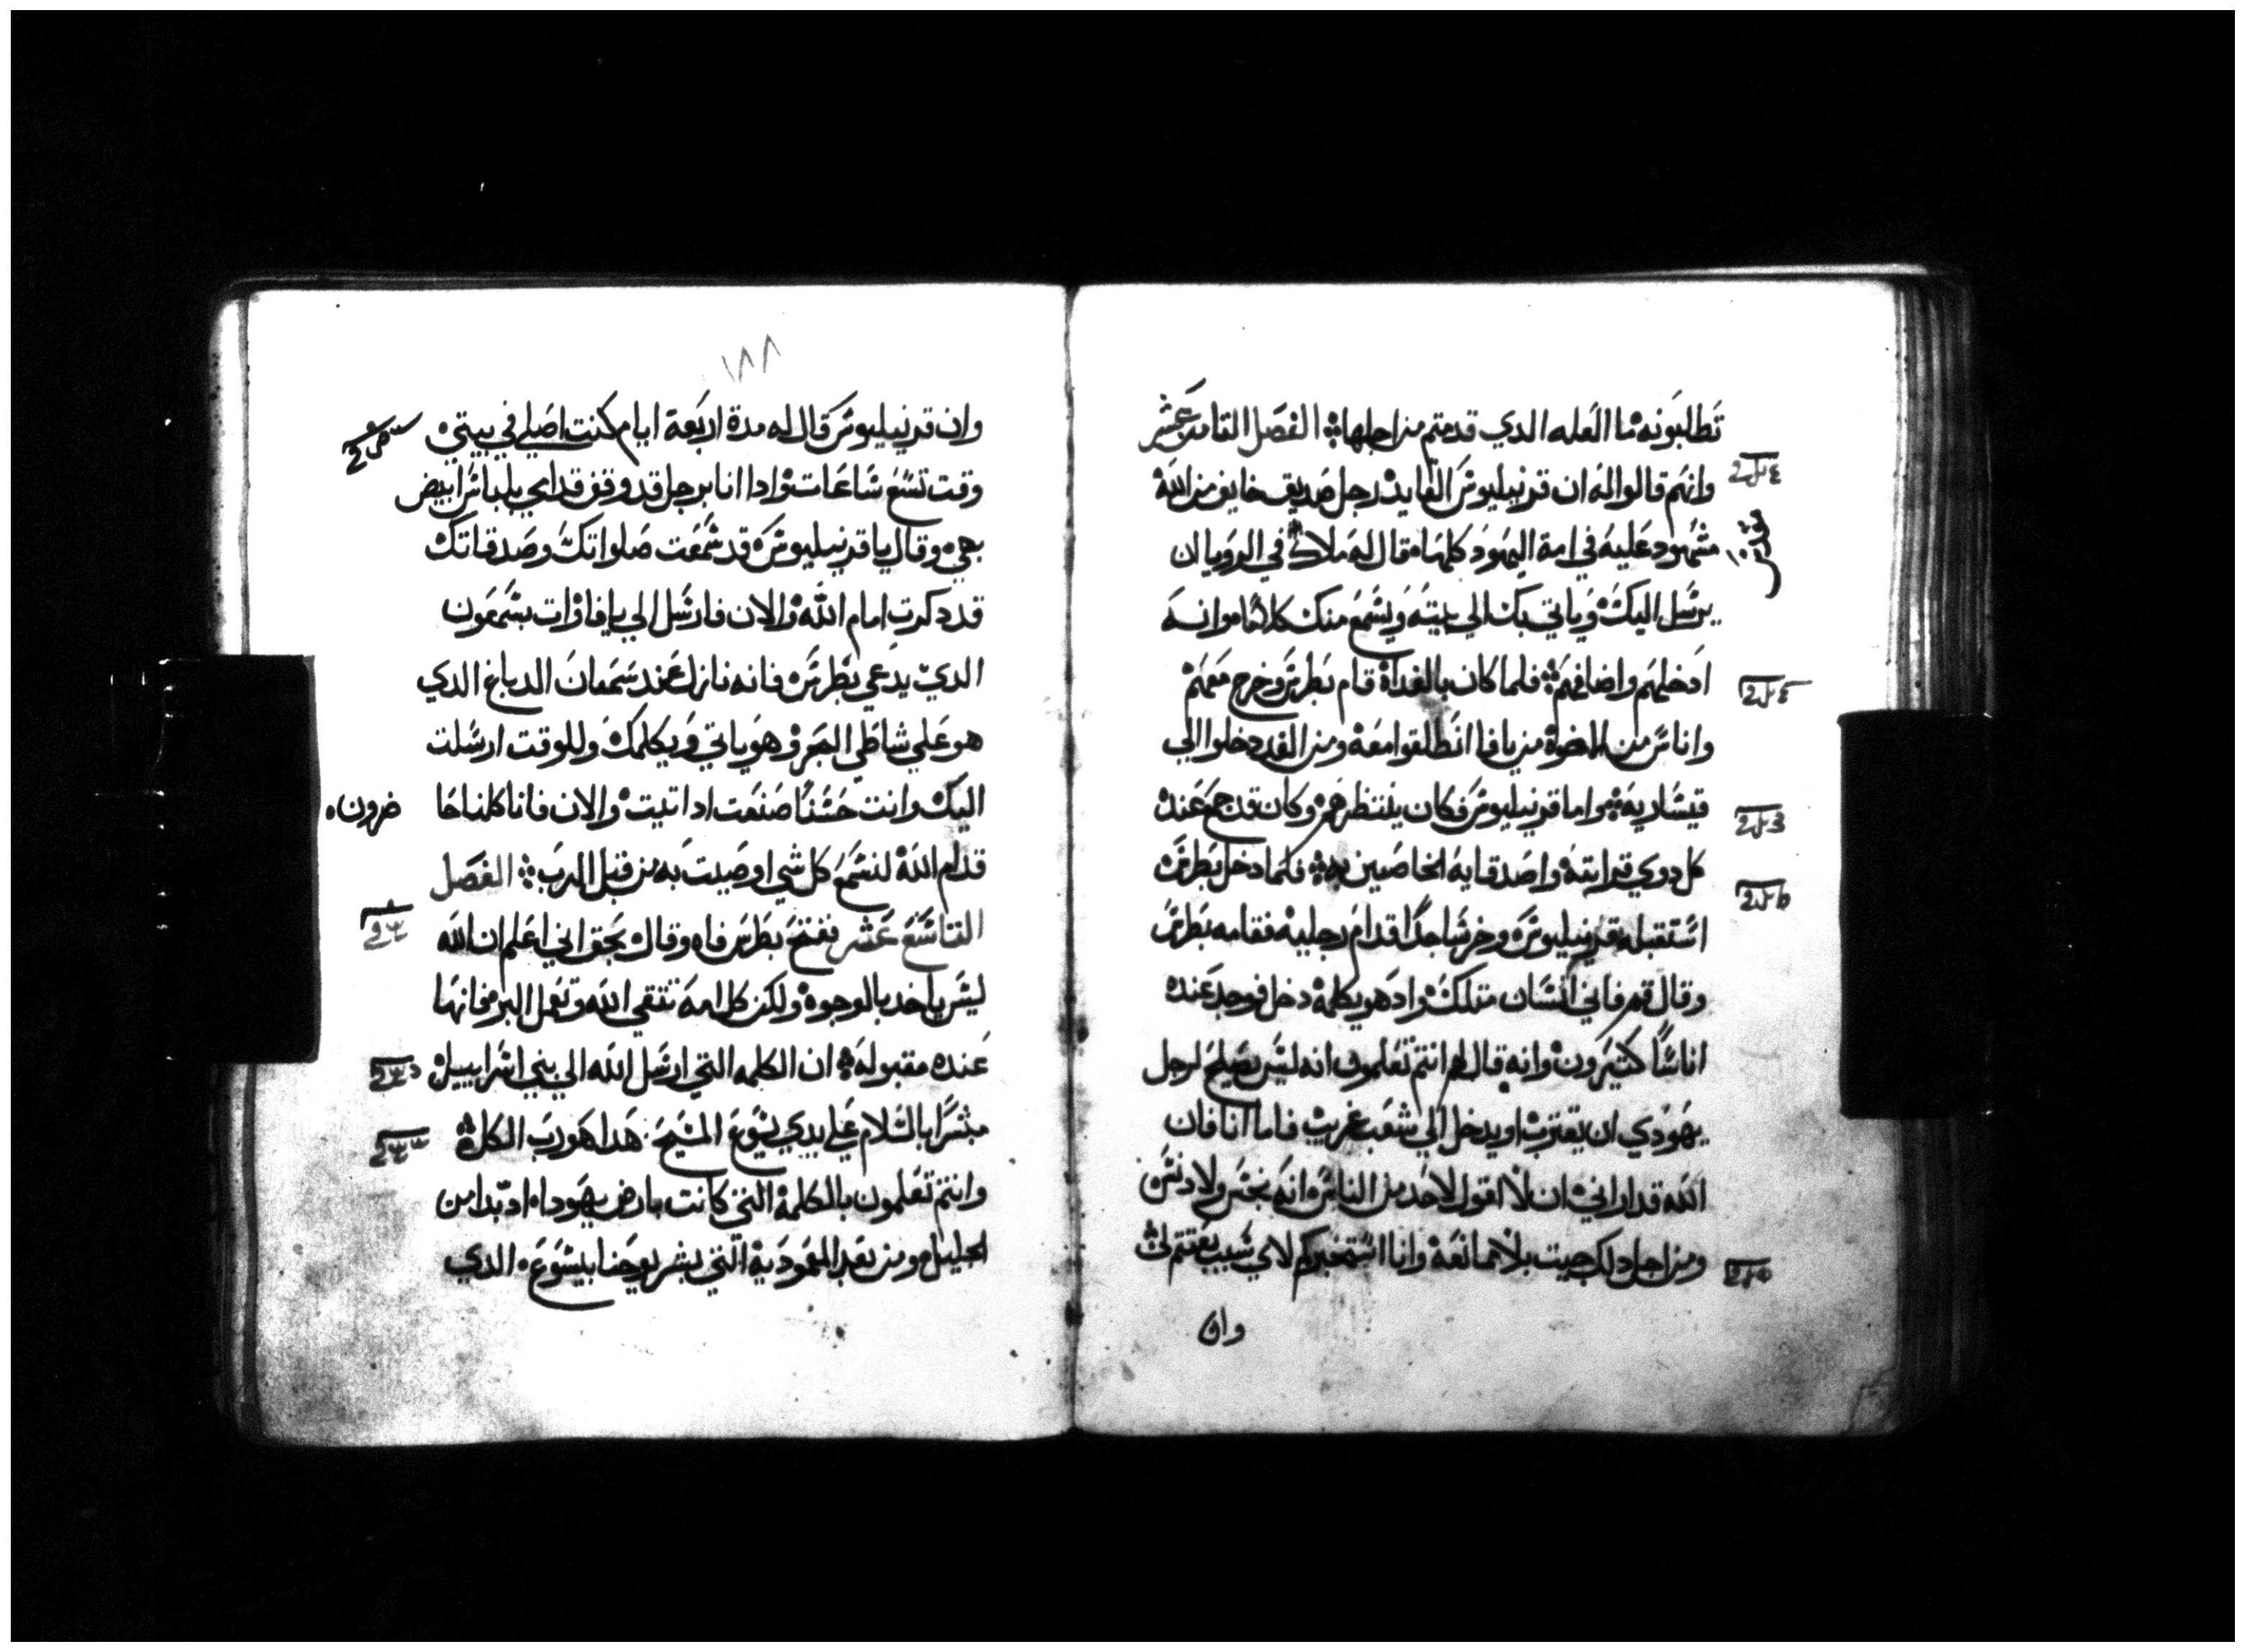 تطلبونه ما العله الدي قدمتم من اجلها الفصل الثامن عشر
وانهم قالوا له ان قرنيليوس القايد رجل صديق خايف من الله
مشهود عليه في امة اليهود كلها قال له ملاك في الرويا ان
يرسل اليك وياتي بك الي بيته ويسمع منك كلاما وانه
ادخلهم واضافهم فلما كان بالغداة قام بطرس وخرج معهم
واناس من الاخوة من يافا انطلقوا معه ومن الغد دخلوا الي
قيسارية واما قرنيليوس فكان ينتظرهم وكان قد جمع عنده
كل دوي قرابته واصدقايه الخاصين به فلما دخل بطرس
استقبله قرنيليوس وخر ساجدا قدام رجليه فقامه بطرس
وقال قم فاني انسان متلك واد هو يكلمه دخل فوجد عنده
اناسا كتيرون وانه قال لهم انتم تعلمون انه ليس يصلح لرجل
يهودي ان يقترب او يدخل الي شعب غريب فاما انا فان
الله قد اراني ان لا اقول لاحد من الناس انه نجس ولا دنس
ومن اجل دلك جيت بلا ممانعة وانا استخبركم لاي سبب بعتتم
وان
١٨٨
وان قرنيليوس قال له مدة اربعة ايام كنت اصلي في بيتي
وقت تسع ساعات وادا انا برجل قد وقف قدامي بلباس ابيض
بهي وقال يا قرنيليوس قد سمعت صلواتك وصدقاتك
قد دكرت امام الله والان فارسل الي يافا وات بسمعون
الدي يدعي بطرس فانه نازل عند سمعان الدباغ الدي
هو علي شاطي البحر وهو ياتي ويكلمك وللوقت ارسلت
اليك وانت حسنا صنعت اد اتيت والان فانا كلنا حا ضرون
قدام الله لنسمع كل شي اوصيت به من قبل الرب الفصل
التاسع عشر ففتح بطرس فاه وقال بحق اني اعلم ان الله
ليس ياخد بالوجوه ولكن كل امة تتقي الله وتعمل البر فانها
عنده مقبولة ان الكلمه التي ارسل الله الي بني اسراييل
مبشرا بالسلام علي يدي يسوع المسيح هدا هو رب الكل
وانتم تعلمون بالكلمة التي كانت بارض يهودا اد بدا من
الجليل ومن بعد المعمودية التي بشر يوحنا بيسوع الدي